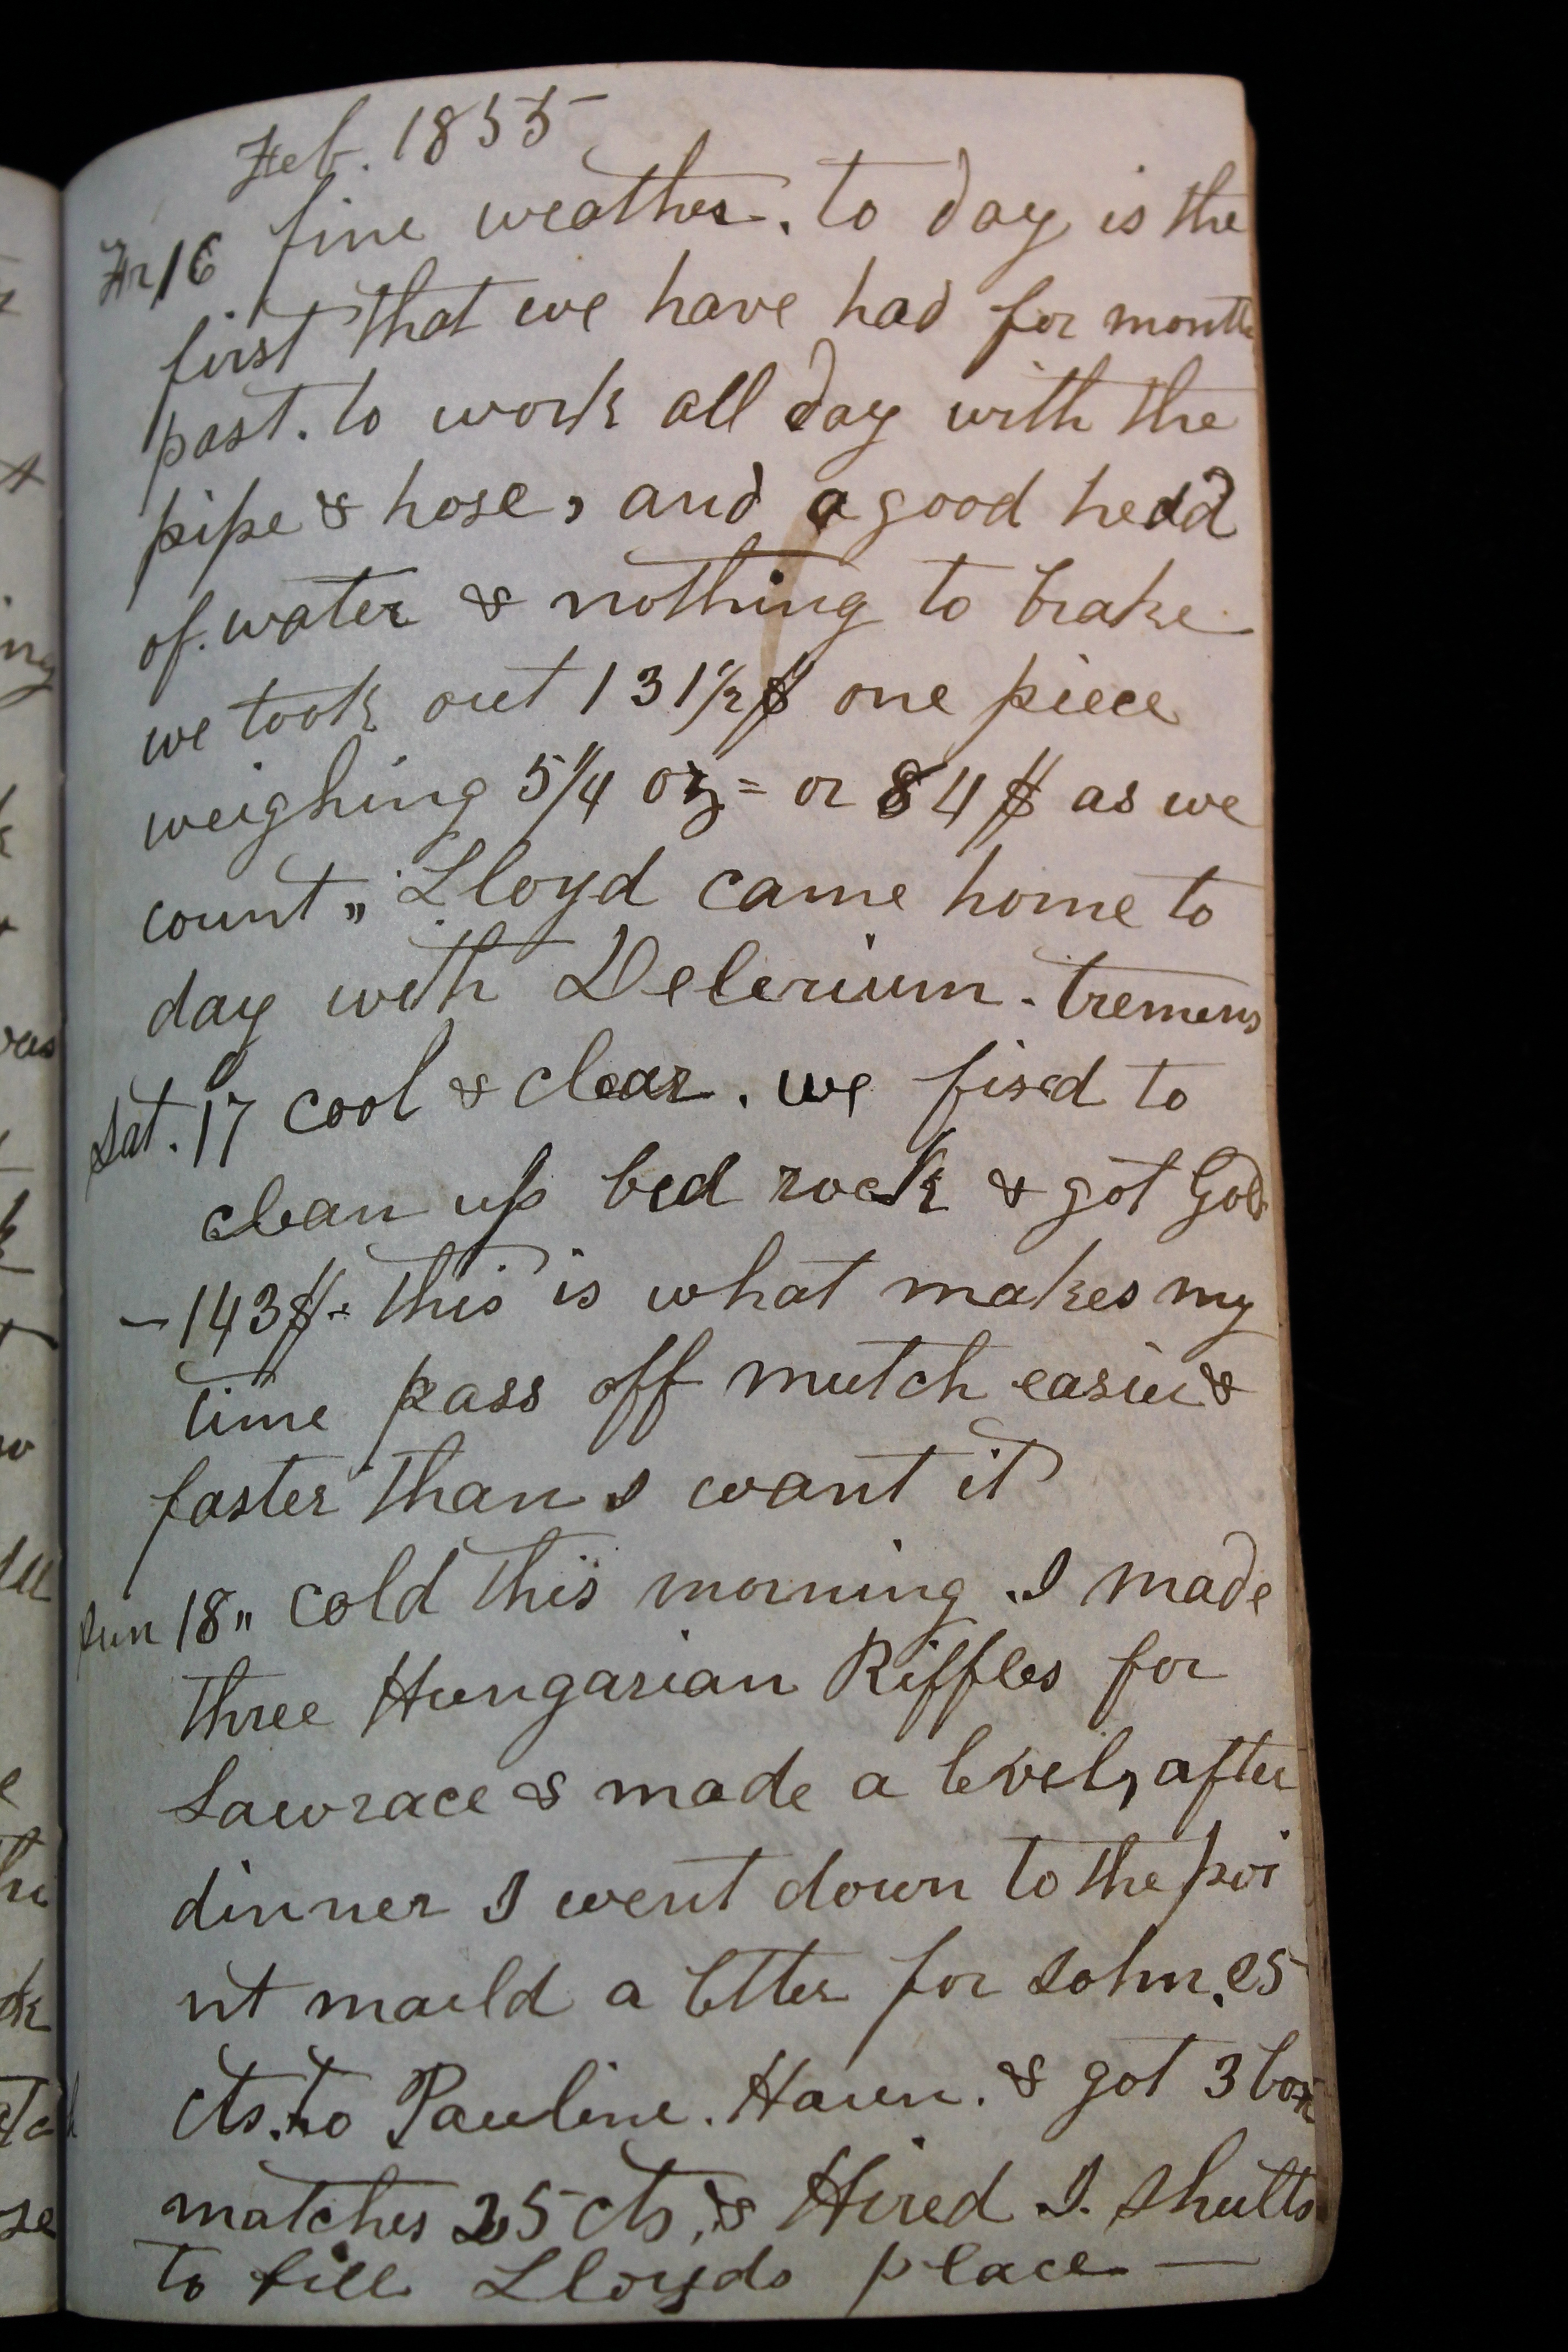 Feb. 1855
Fr 16 fine weather. to day is the
first that we have had for month
past. to work all day with the
pipe & hose, and a good hedd
of. water & nothing to brake
we took out 131½$ one piece
weighing 5¼ oz = or 84$ as we
count„ Lloyd came home to
day with Delerium. tremens
Sat. 17 cool & clear. we fixed to
clean up bed rock & got Gold
— 143$. this is what makes my
time pass off mutch easier &
faster than I want it
Sun 18„ cold this morning. I made
three Hungarian Riffles for
Lawrace & made a level, after
dinner I went down to the poi
nt maild a letter for John. 25
cts. to Pauline. Haun. & got 3 box
matches 25 cts, & Hired J. Shults
to fill Lloyds place —